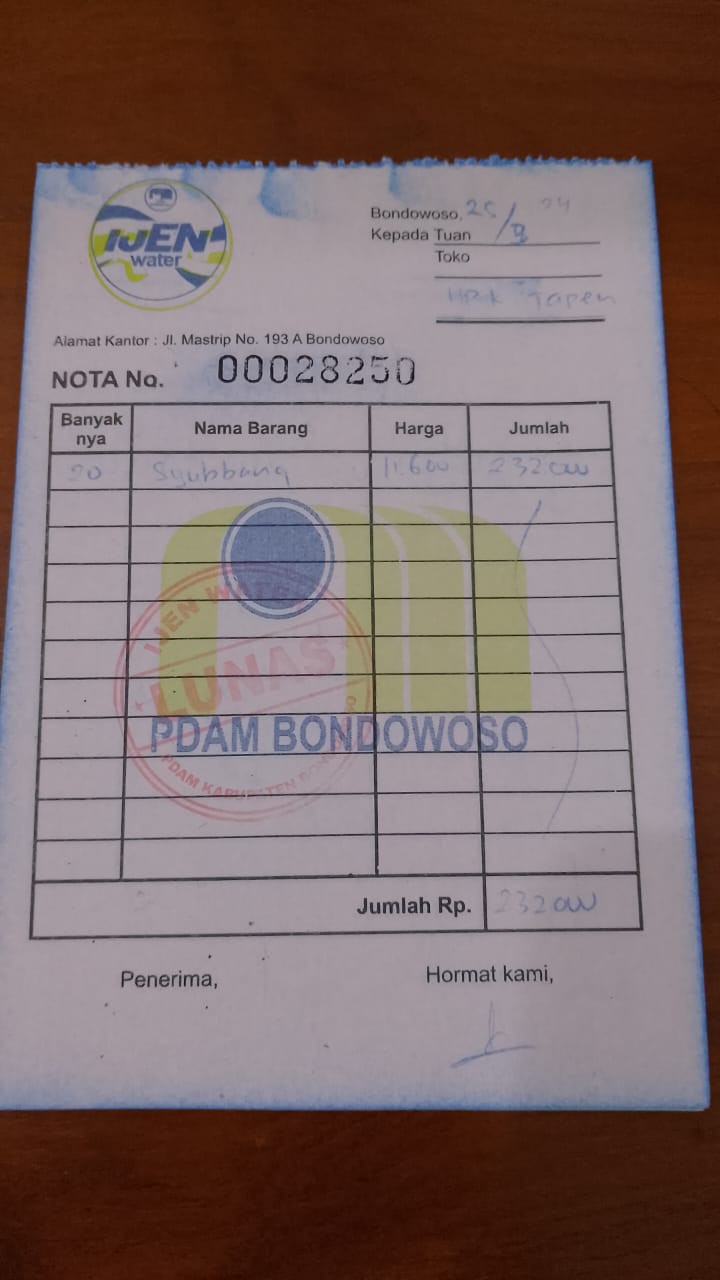 IJEN
water
Bondowoso, 25/8 24
Kepada Tuan
Toko
Tapen
Alamat Kantor : Jl. Mastrip No. 193 A Bondowoso
NOTA No. 00028250
Banyak nya Nama Barang Harga Jumlah
20 Syubbana 11.600 232000
IJEN WATER
LUNAS
PDAM BONDOWOSO
PDAM KABUPATEN BONDOWOSO
Jumlah Rp. 232000
Penerima, Hormat kami,